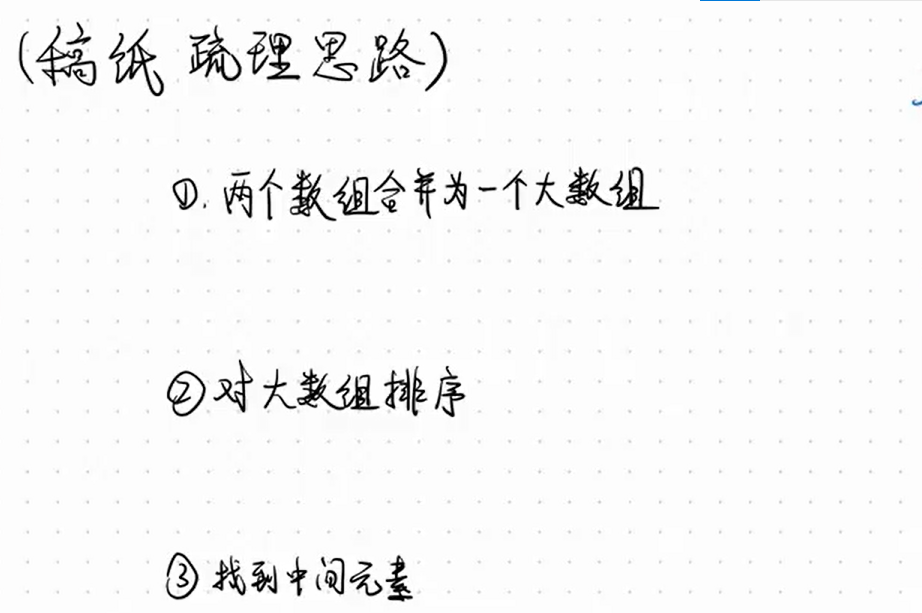 (稿纸 疏理思路)
①. 两个数组合并为一个大数组
② 对大数组排序
③ 找到中间元素